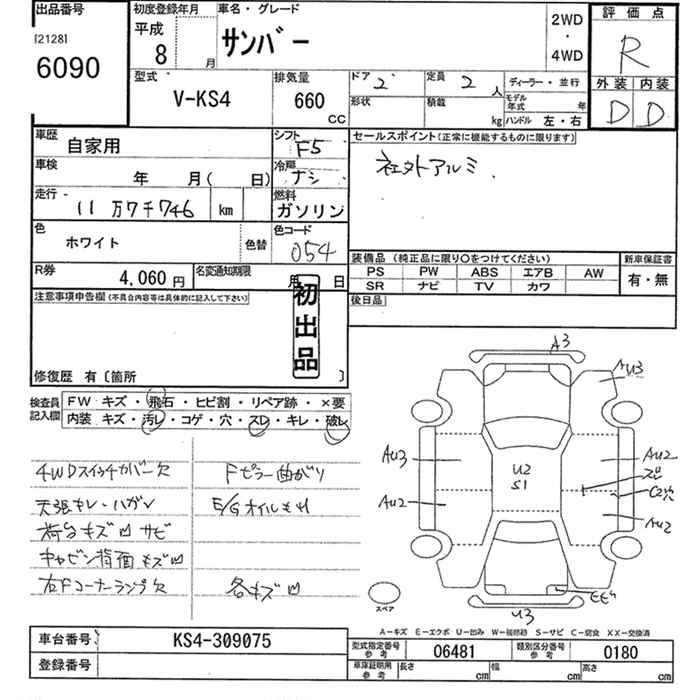 出品番号
[2128]
6090
初度登録年月
平成
8
月
車名・グレード
サンバー
2WD
・
4WD
評価点
R
外装 内装
D D
型式
V-KS4
排気量
660
CC
ドア 2
定員 2 人
ディーラー・並行
形状
積載 kg
モデル年式 年
ハンドル 左・右
車歴
自家用
シフト
F5
セールスポイント(正常に機能するものに限ります)
社外アルミ
車検
年 月( 日)
冷房
ナシ
走行
11万7千746 km
燃料
ガソリン
色
ホワイト
色替
色コード
054
装備品(純正品に限り〇をつけてください)
新車保証書
PS PW ABS エアB AW
有・無
SR ナビ TV カワ
R券
4,060 円
名変通知期限
月 日
後日品
注意事項申告欄(不具合内容等は具体的に記入して下さい)
初出品
修復歴 有〔箇所 〕
検査員記入欄
FW キズ・飛石・ヒビ割・リペア跡・×要
内装 キズ・汚レ・コゲ・穴・スレ・キレ・破レ
4WDスイッチカバー欠
Fピラー曲がり
天張キレ・ハガレ
E/Gオイルもれ
荷台キズ凹 サビ
キャビン背面キズ凹
右Fコーナーランプ欠
各キズ凹
A3
AU3
AU3
AU2
U2
S1
AU2
C2穴
AU2
U3
スペア
A－キズ E－エクボ U－凹み W－補修跡 S－サビ C－腐食 XX－交換済
車台番号
KS4-309075
型式指定番号
参考
06481
類別区分番号
参考
0180
登録番号
車庫証明用
参考
長さ cm
幅 cm
高さ cm